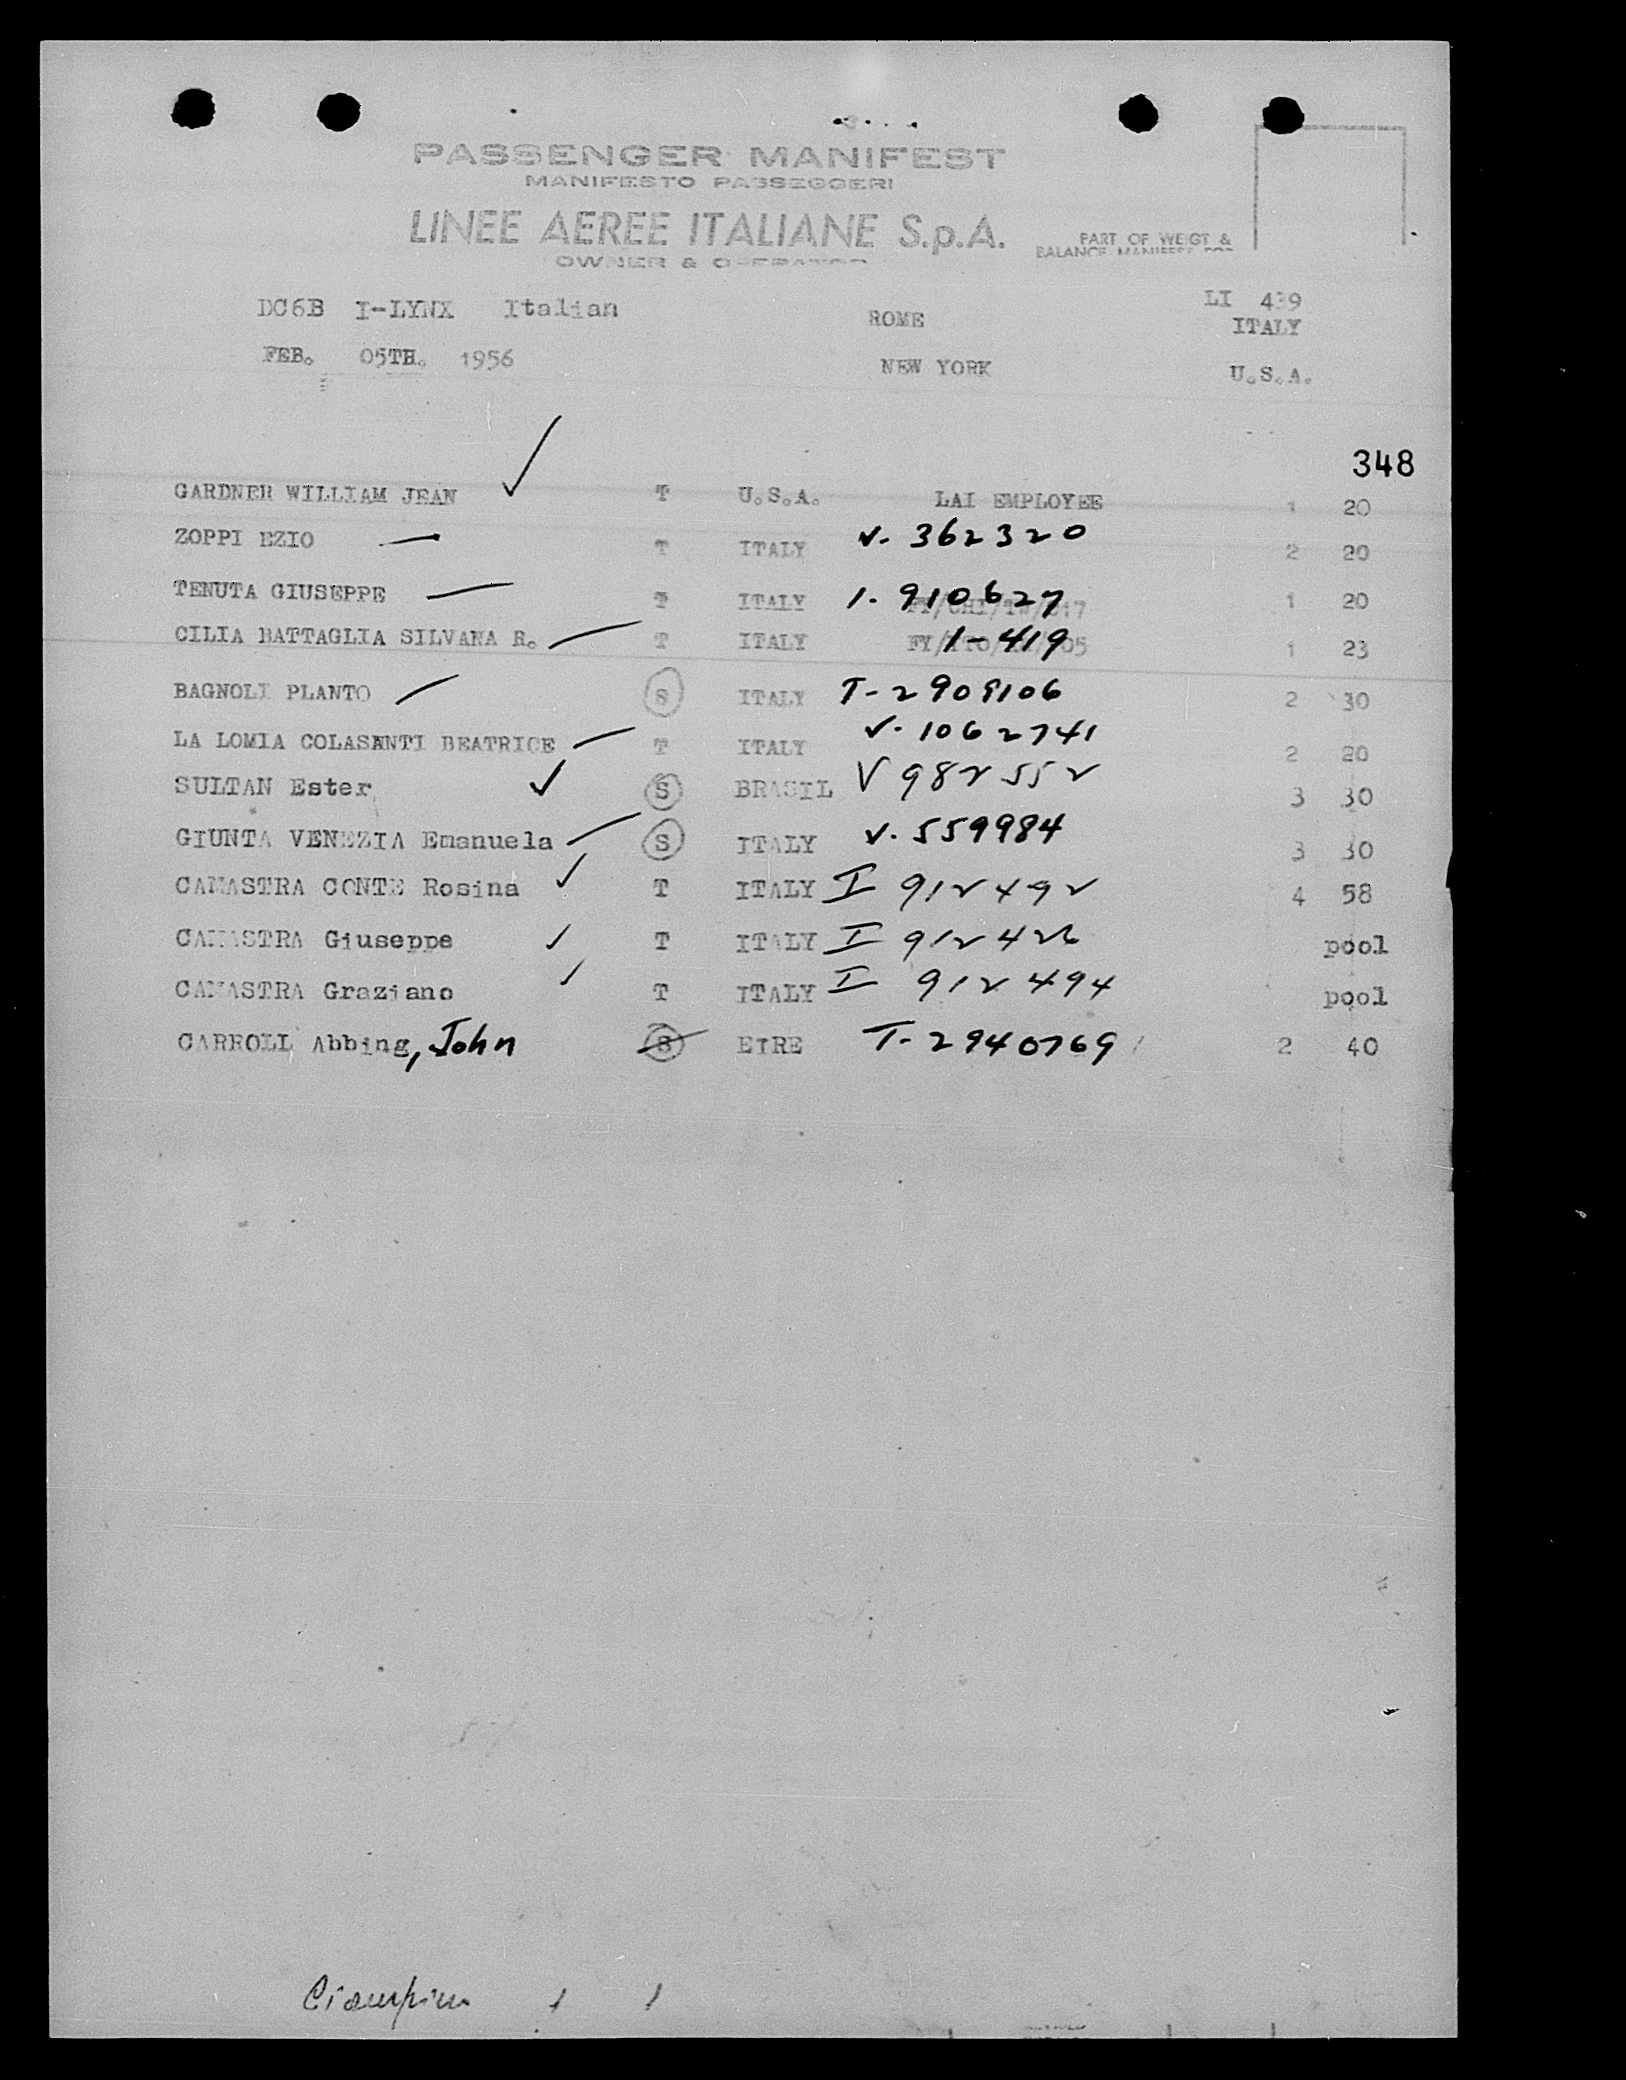 PASSENGER MANIFEST
MANIFESTO PASSEGGERI
LINEE AEREE ITALIANE S.p.A.
OWNER & OPERATOR
PART OF WEIGT &
BALANCE MANIFEST FOR
DC6B I-LYNX Italian ROME LI 439
ITALY
FEB. 05TH. 1956 NEW YORK U.S.A.
348
GARDNER WILLIAM JEAN T U.S.A. LAI EMPLOYEE 1 20
ZOPPI EZIO T ITALY V. 362320 2 20
TENUTA GIUSEPPE T ITALY 1. 910627 1 20
CILIA BATTAGLIA SILVANA R. T ITALY 1-419 1 23
BAGNOLI PLANTO S ITALY T-2909106 2 30
LA LOMIA COLASANTI BEATRICE T ITALY V. 1062741 2 20
SULTAN Ester S BRASIL V 982552 3 30
GIUNTA VENEZIA Emanuela S ITALY V. 559984 3 30
CAMASTRA CONTE Rosina T ITALY I 912492 4 58
CAMASTRA Giuseppe T ITALY I 912426 pool
CAMASTRA Graziano T ITALY I 912494 pool
CARROLL Abbing, John S EIRE T-2940769 2 40
Ciampino 1 1